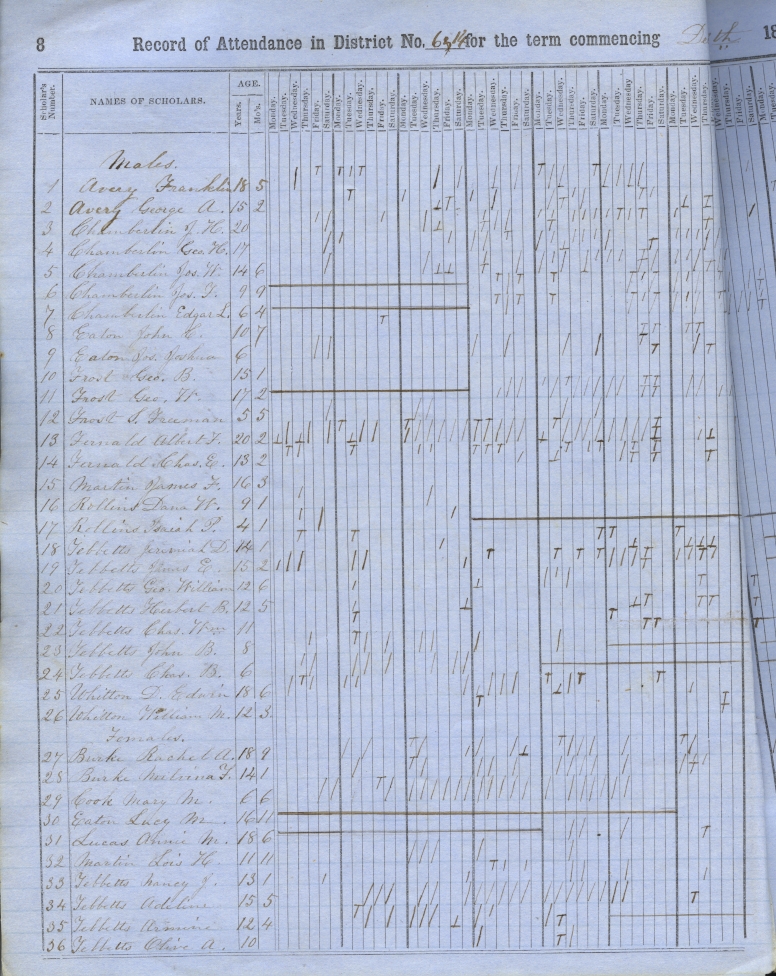 8 Record of Attendance in District No. 6 & 14 for the term commencing 18
Scholar's Number. NAMES OF SCHOLARS. AGE. Years. Mo's. Monday. Tuesday. Wednesday. Thursday. Friday. Saturday. Monday. Tuesday. Wednesday. Thursday. Friday. Saturday. Monday. Tuesday. Wednesday. Thursday. Friday. Saturday. Monday. Tuesday. Wednesday. Thursday. Friday. Saturday. Monday. Tuesday. Wednesday. Thursday. Friday. Saturday. Monday. Tuesday. Wednesday. Thursday. Friday. Saturday. Monday. Tuesday. Wednesday. Thursday.
Males.
1 Avery Franklin 18 5
2 Avery George A. 15 2
3 Chamberlin J. H. 20
4 Chamberlin Geo. H. 17
5 Chamberlin Jos. W. 14 6
6 Chamberlin Jas. F. 9 9
7 Chamberlin Edgar L. 6 4
8 Eaton John C. 10 7
9 Eaton Jos. Joshua 6
10 Frost Geo. B. 15 1
11 Frost Geo. W. 17 2
12 Frost S. Freeman 5 5
13 Fernald Albert F. 20 2
14 Fernald Chas. E. 13 2
15 Martin James F. 16 3
16 Rollins Dana W. 9 1
17 Rollins Isaiah P. 4 1
18 Tebbetts Jeremiah D. 14 1
19 Tebbetts E. 15 2
20 Tebbetts Geo. William 12 6
21 Tebbetts Herbert B. 12 5
22 Tebbetts Chas. Wm 11
23 Tebbetts John B. 8
24 Tebbetts Chas. B. 6
25 Whitton D. Edwin 18 6
26 Whitton William M. 12 3
Females.
27 Burke Rachel A. 18 9
28 Burke Melvina F. 14 1
29 Cook Mary M. 6 6
30 Eaton Lucy M. 16 11
31 Lucas Annie M. 18 6
32 Martin Lois H. 11 11
33 Tebbetts Nancy J. 13 1
34 Tebbetts Adeline 15 5
35 Tebbetts Armine 12 4
36 Tebbetts Olive A. 10